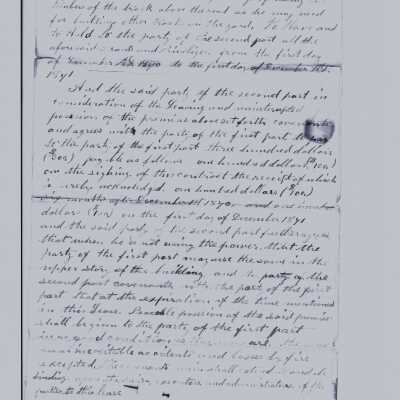 of the track above therest as he may need
for building other track in the yard, to Have and
to Hold to the party of the second part all the
aforesaid and privileges from the first day
of December 1870 to the first day of December
1871
And the said party of the second part in
consideration of the Leasing and uninterrupted
possession of the premises above set forth covenants
and agrees with the party of the first part to pay
to the party of the first part three hundred dollars
payable as follows one hundred dollars
on the signing of this contract the receipt of which
is hereby acknowledged one hundred dollars
six months after December 1st 1870 and one hundred
dollars on the first day of December 1871
and the said party of the second part further agrees
that when he is not using the power that the
party of the first part may use the same in the
upper story of the building, and the party of the
second part covenants with the party of the first
part that at the expiration of the time mentioned
in this Lease Peaceable possession of the said premises
shall be given to the party of the first part
in as good condition as they now are the
inevitable accidents and losses by fire
excepted these covenants shall extend and be
binding upon the heirs executors and administrators of the
parties to this lease